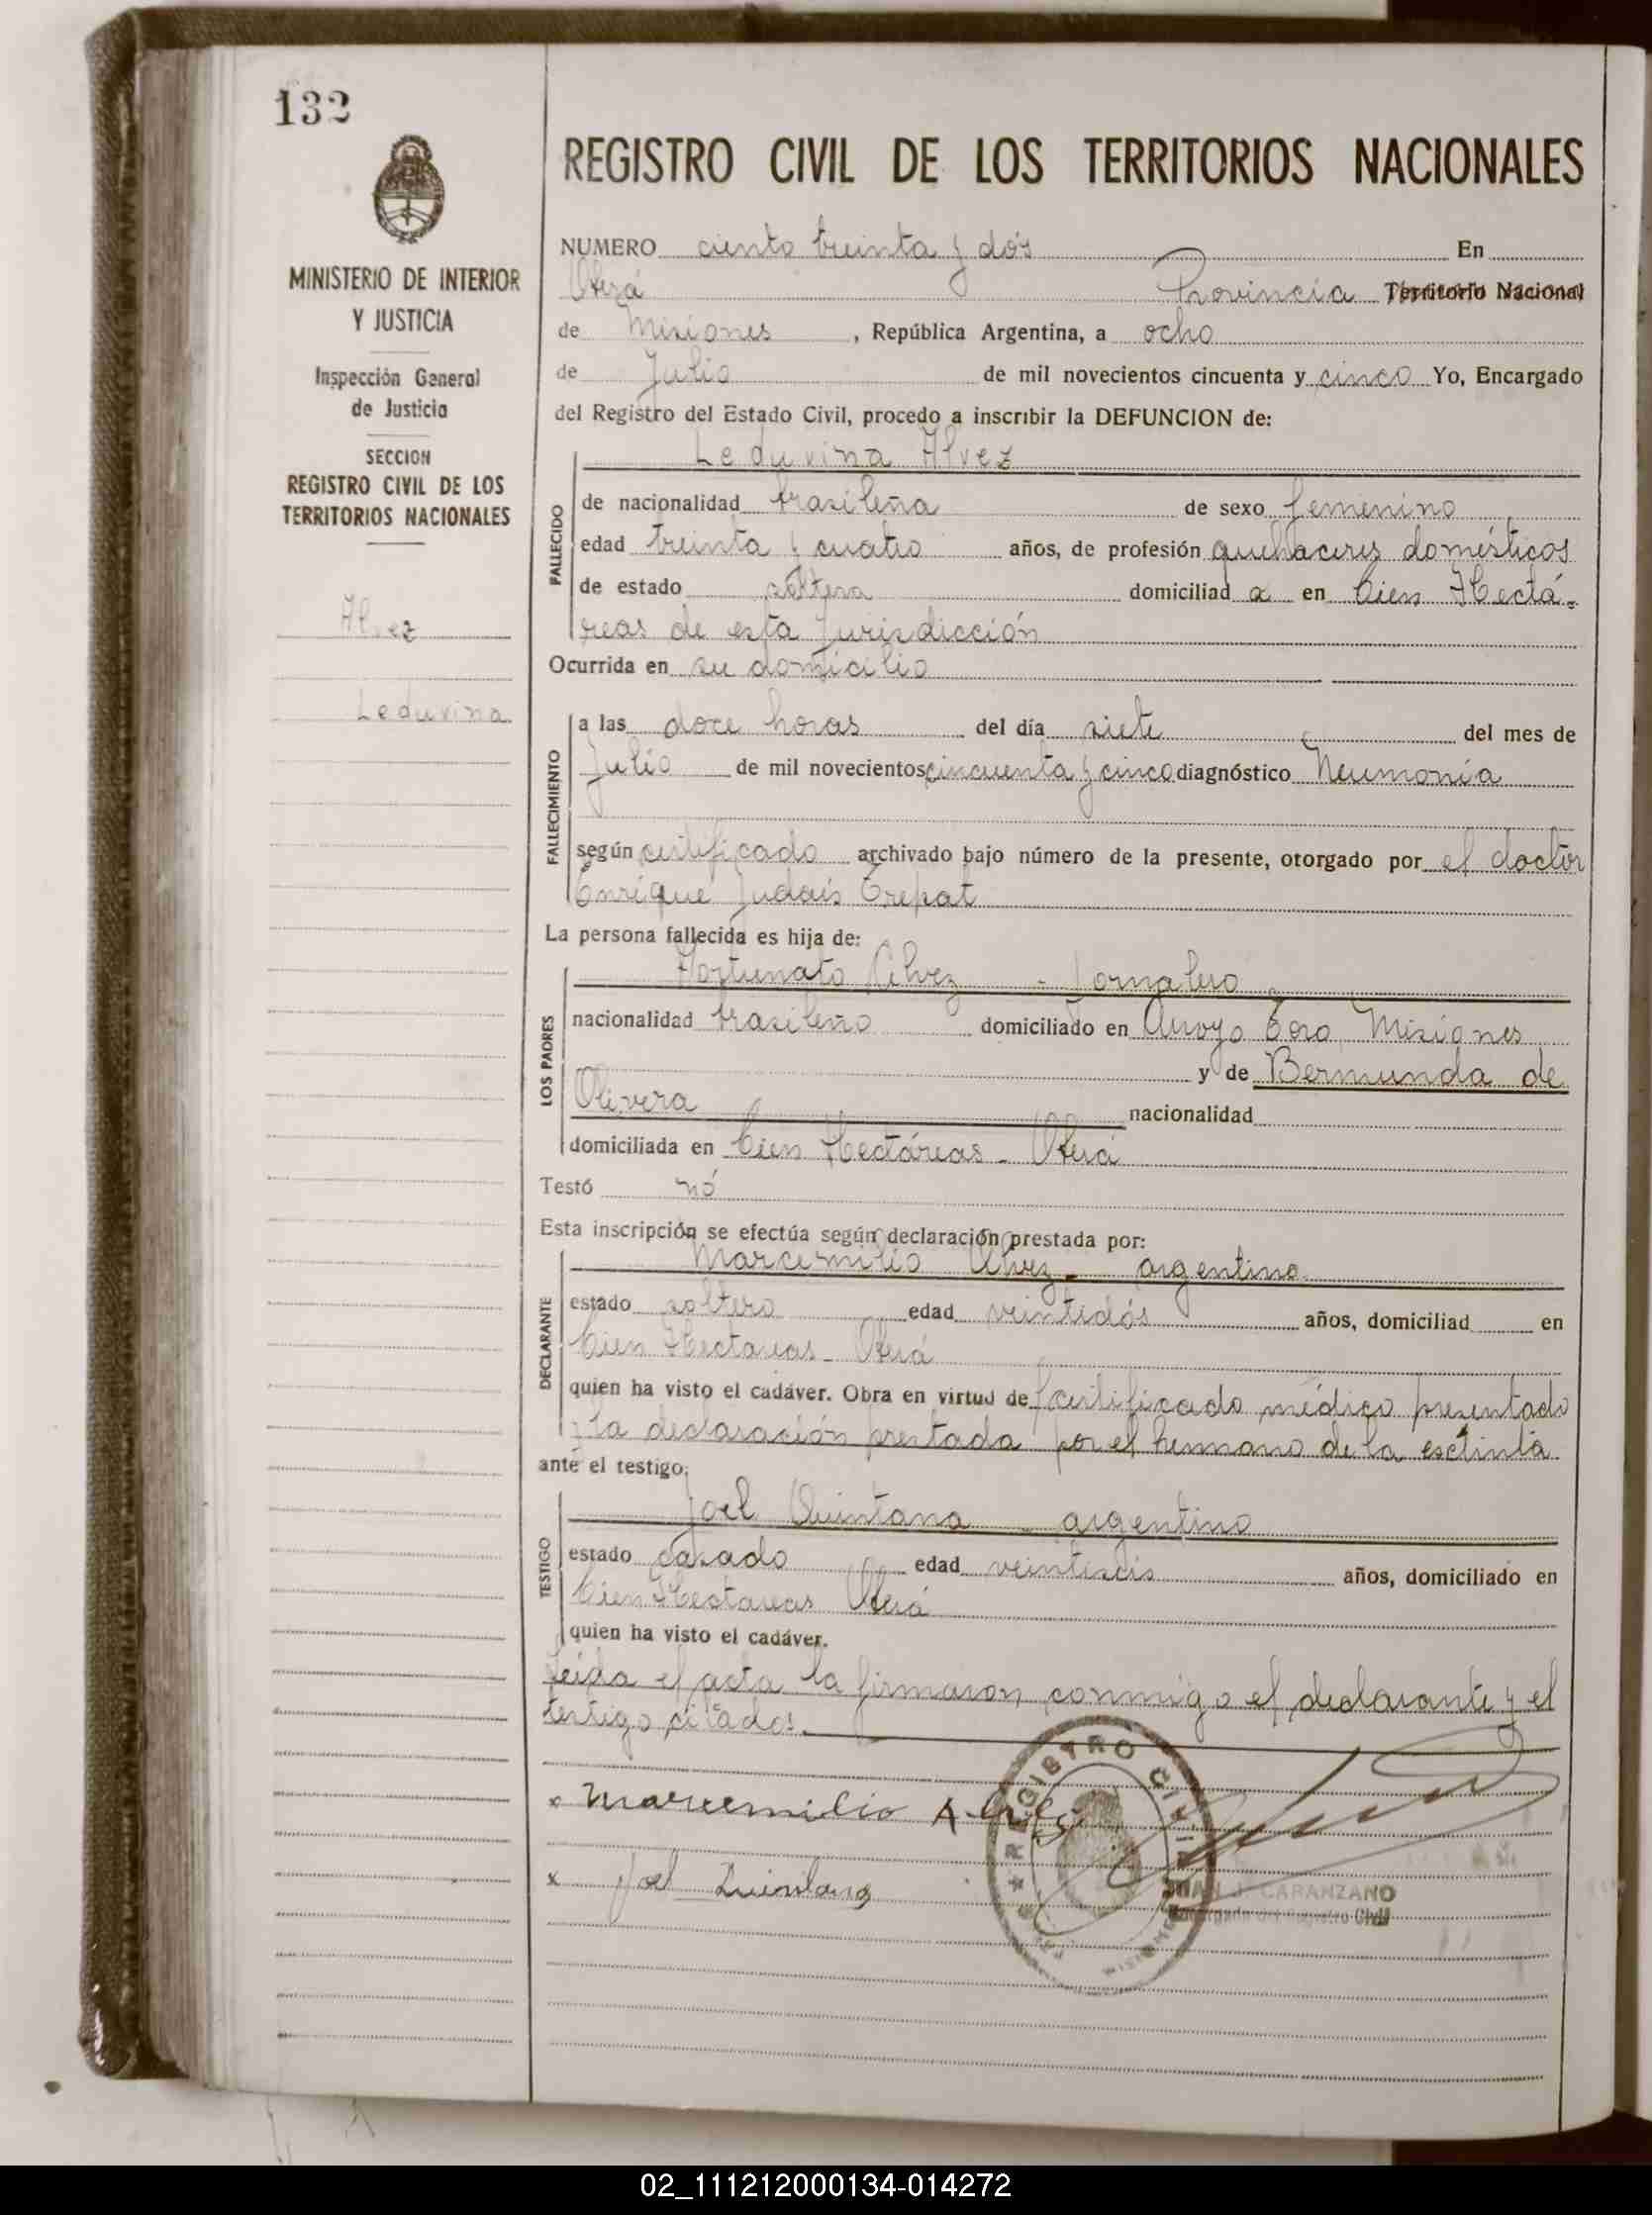 132
REGISTRO CIVIL DE LOS TERRITORIOS NACIONALES
MINISTERIO DE INTERIOR
Y JUSTICIA
Inspección General
de Justicia
SECCION
REGISTRO CIVIL DE LOS
TERRITORIOS NACIONALES
Alvez
Leduvina
NUMERO ciento treinta y dós En
Oberá Provincia Territorio Nacional
de Misiones, República Argentina, a ocho
de Julio de mil novecientos cincuenta y cinco Yo, Encargado
del Registro del Estado Civil, procedo a inscribir la DEFUNCION de:
Leduvina Alvez
FALLECIDO
de nacionalidad brasileña de sexo femenino
edad treinta y cuatro años, de profesión quehaceres domésticos
de estado soltera domiciliad a en Cien Hectá-
reas de esta Jurisdicción
Ocurrida en su domicilio
FALLECIMIENTO
a las doce horas del día siete del mes de
Julio de mil novecientos cincuenta y cinco diagnóstico Neumonía
según certificado archivado bajo número de la presente, otorgado por el doctor
Enrique Judais Trepat
La persona fallecida es hija de:
LOS PADRES
Fortunato Alvez - Jornalero
nacionalidad brasileño domiciliado en Arroyo Toro Misiones
y de Bermunda de
Olivera nacionalidad
domiciliada en Cien Hectáreas - Oberá
Testó nó
Esta inscripción se efectúa según declaración prestada por:
DECLARANTE
Marcemilio Alvez - argentino
estado soltero edad veintidós años, domiciliad en
Cien Hectareas - Oberá
quien ha visto el cadáver. Obra en virtud de certificado médico presentado
y la declaración prestada por el hermano de la esctinta
ante el testigo:
TESTIGO
Joel Quintana - argentino
estado casado edad veintiseis años, domiciliado en
Cien Hectareas Oberá
quien ha visto el cadáver.
Leida el acta la firmaron conmigo el declarante y el
testigo citados.
x Marcemilio Alvez
x Joel Quintana
REGISTRO CIVIL
MISIONES
JUAN J. CARANZANO
Encargado del Registro Civil
02_111212000134-014272